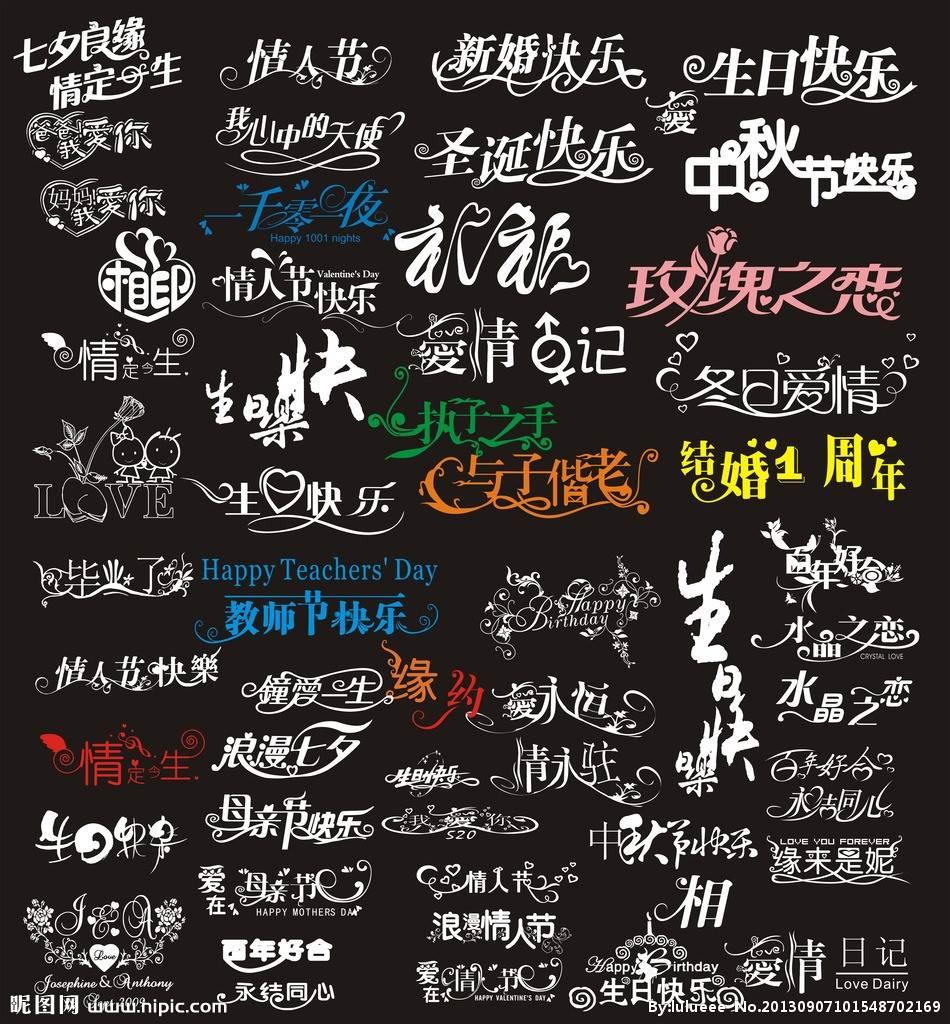 七夕良缘
情定一生
情人节
新婚快乐
生日快乐
爸爸我愛你
我心中的天使
圣诞快乐
Love
愛
中秋节快乐
妈妈我愛你
一千零一夜
Happy 1001 nights
相印
情人节快乐
Valentine's Day
玫瑰之恋
情定今生
生日快樂
愛情日记
冬日爱情
执子之手
与子偕老
结婚1周年
LOVE
生日快乐
毕业了
Happy Teachers' Day
教师节快乐
Happy Birthday
生日快樂
百年好合
水晶之恋
CRYSTAL LOVE
情人节快樂
鐘爱一生
缘约
愛永恒
水晶之恋
情定今生
浪漫七夕
生日快乐
情永驻
百年好合
永结同心
生日快乐
母亲节快乐
我愛你
520
中秋节快乐
LOVE YOU FOREVER
缘来是妮
爱在母亲节
HAPPY MOTHERS DAY
情人节
相
J & A
Love
Josephine & Anthony
2009
百年好合
永结同心
浪漫情人节
爱在情人节
HAPPY VALENTINE'S DAY
Happy Birthday
生日快乐
愛情日记
Love Dairy
昵图网 www.nipic.com
By:lulueee No.20130907101548702169